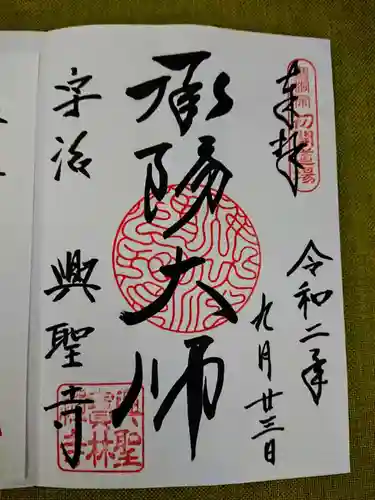 奉拝
初開道場
令和二年
九月廿三日
承陽大師
宇治 興聖寺